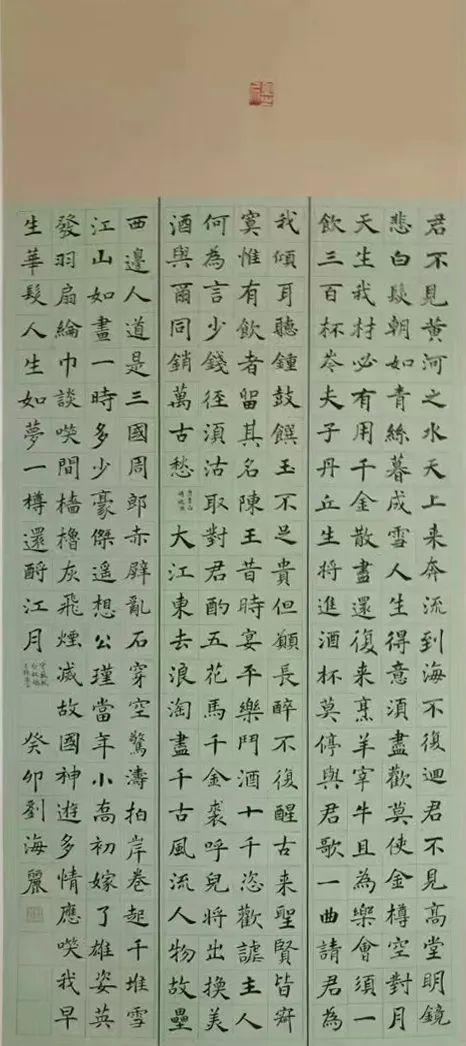 君不見黃河之水天上来奔流到海不復迴君不見高堂明鏡
悲白髮朝如青絲暮成雪人生得意須盡歡莫使金樽空對月
天生我材必有用千金散盡還復来烹羊宰牛且為樂會須一
飲三百杯岑夫子丹丘生将進酒杯莫停與君歌一曲請君為
我傾耳聽鍾鼓饌玉不足貴但願長醉不復醒古来聖賢皆
寞惟有飲者留其名陳王昔時宴平樂鬥酒十千恣歡謔主人
何為言少錢徑須沽取對君酌五花馬千金裘呼兒将出換美
酒與爾同銷萬古愁 大江東去浪淘盡千古風流人物故壘
西邊人道是三國周郎赤壁亂石穿空驚濤拍岸卷起千堆雪
江山如畫一時多少豪傑遥想公瑾當年小喬初嫁了雄姿英
發羽扇綸巾談笑間檣櫓灰飛煙滅故國神遊多情應笑我早
生華髮人生如夢一樽還酹江月 癸卯劉海麗